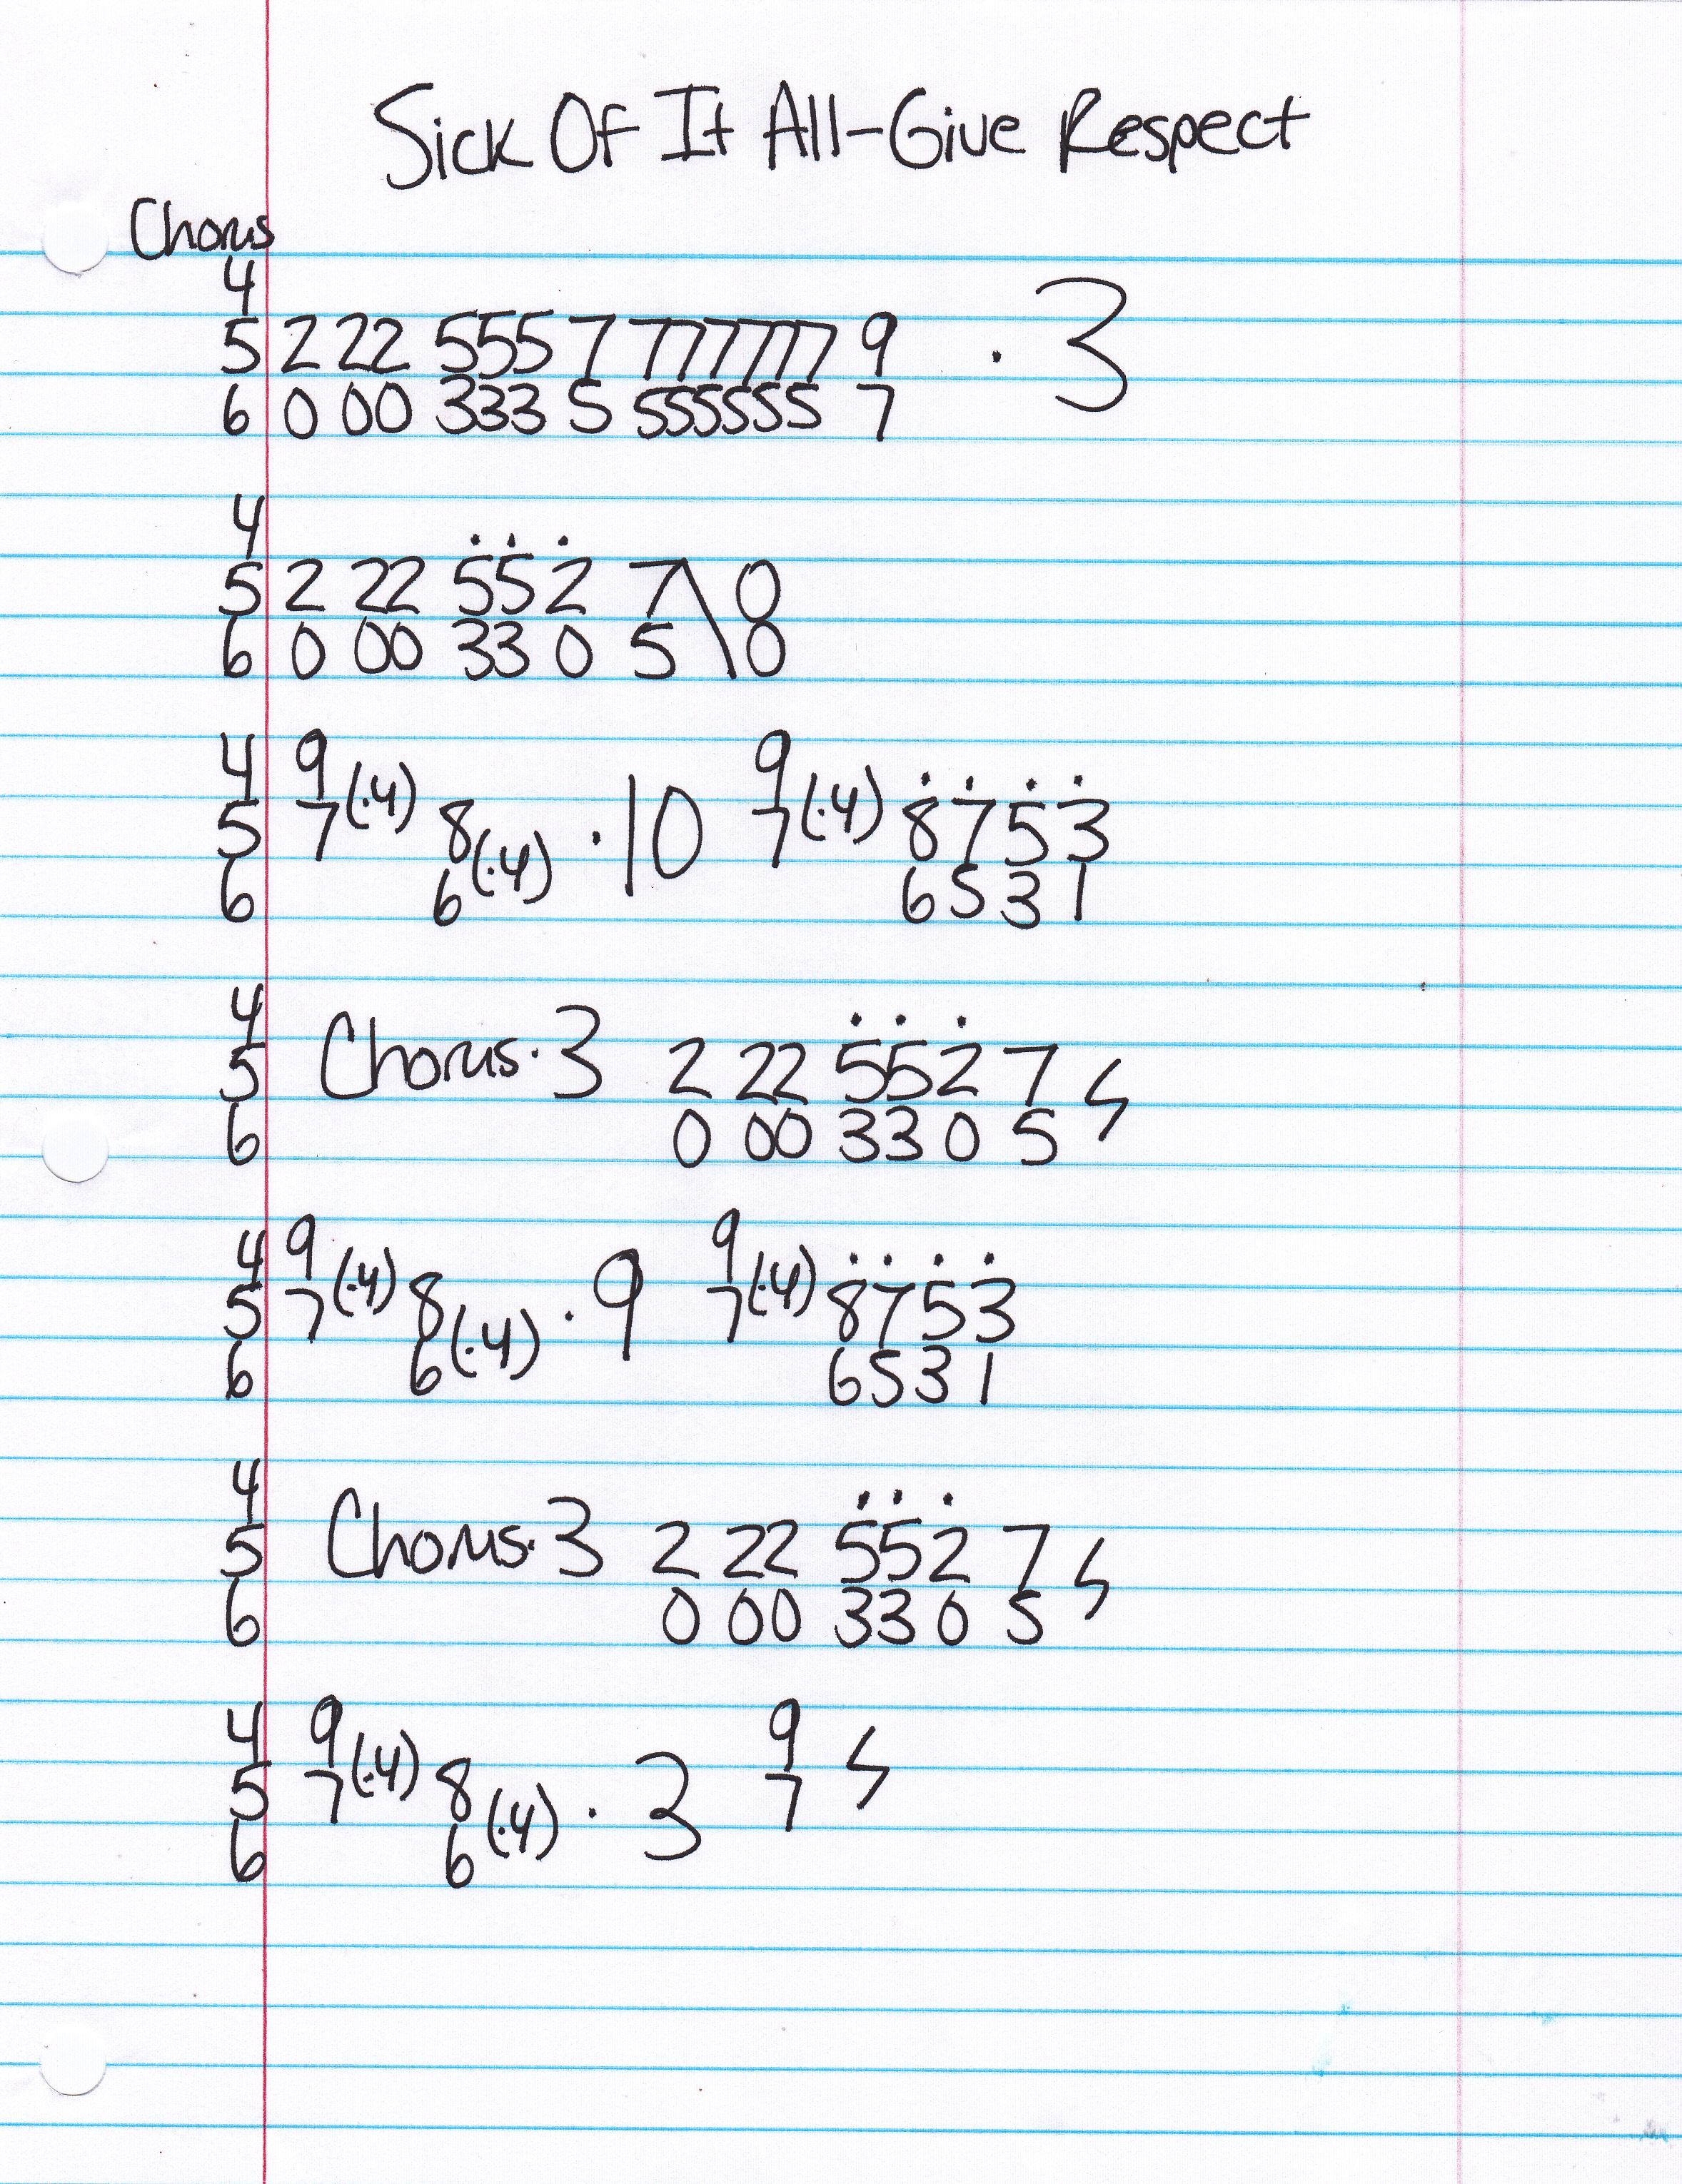 Sick Of It All-Give Respect
Chorus
4
5 2 22 555 7 777777 9 · 3
6 0 00 333 5 555555 7
4
5 2 22 552 7\ 0
6 0 00 33 0 5 0
4 9 9
5 7(·4) 8 ·10 7(·4) 8 7 5 3
6 6(·4) 6 5 3 1
4
5 Chorus·3 2 22 552 7
6 0 00 33 0 5
4 9 9
5 7(·4) 8 ·9 7(·4) 8753
6 6(·4) 6531
4
5 Chorus·3 2 22 552 7
6 0 00 33 0 5
4 9 9
5 7(·4) 8 · 3 7
6 6(·4)